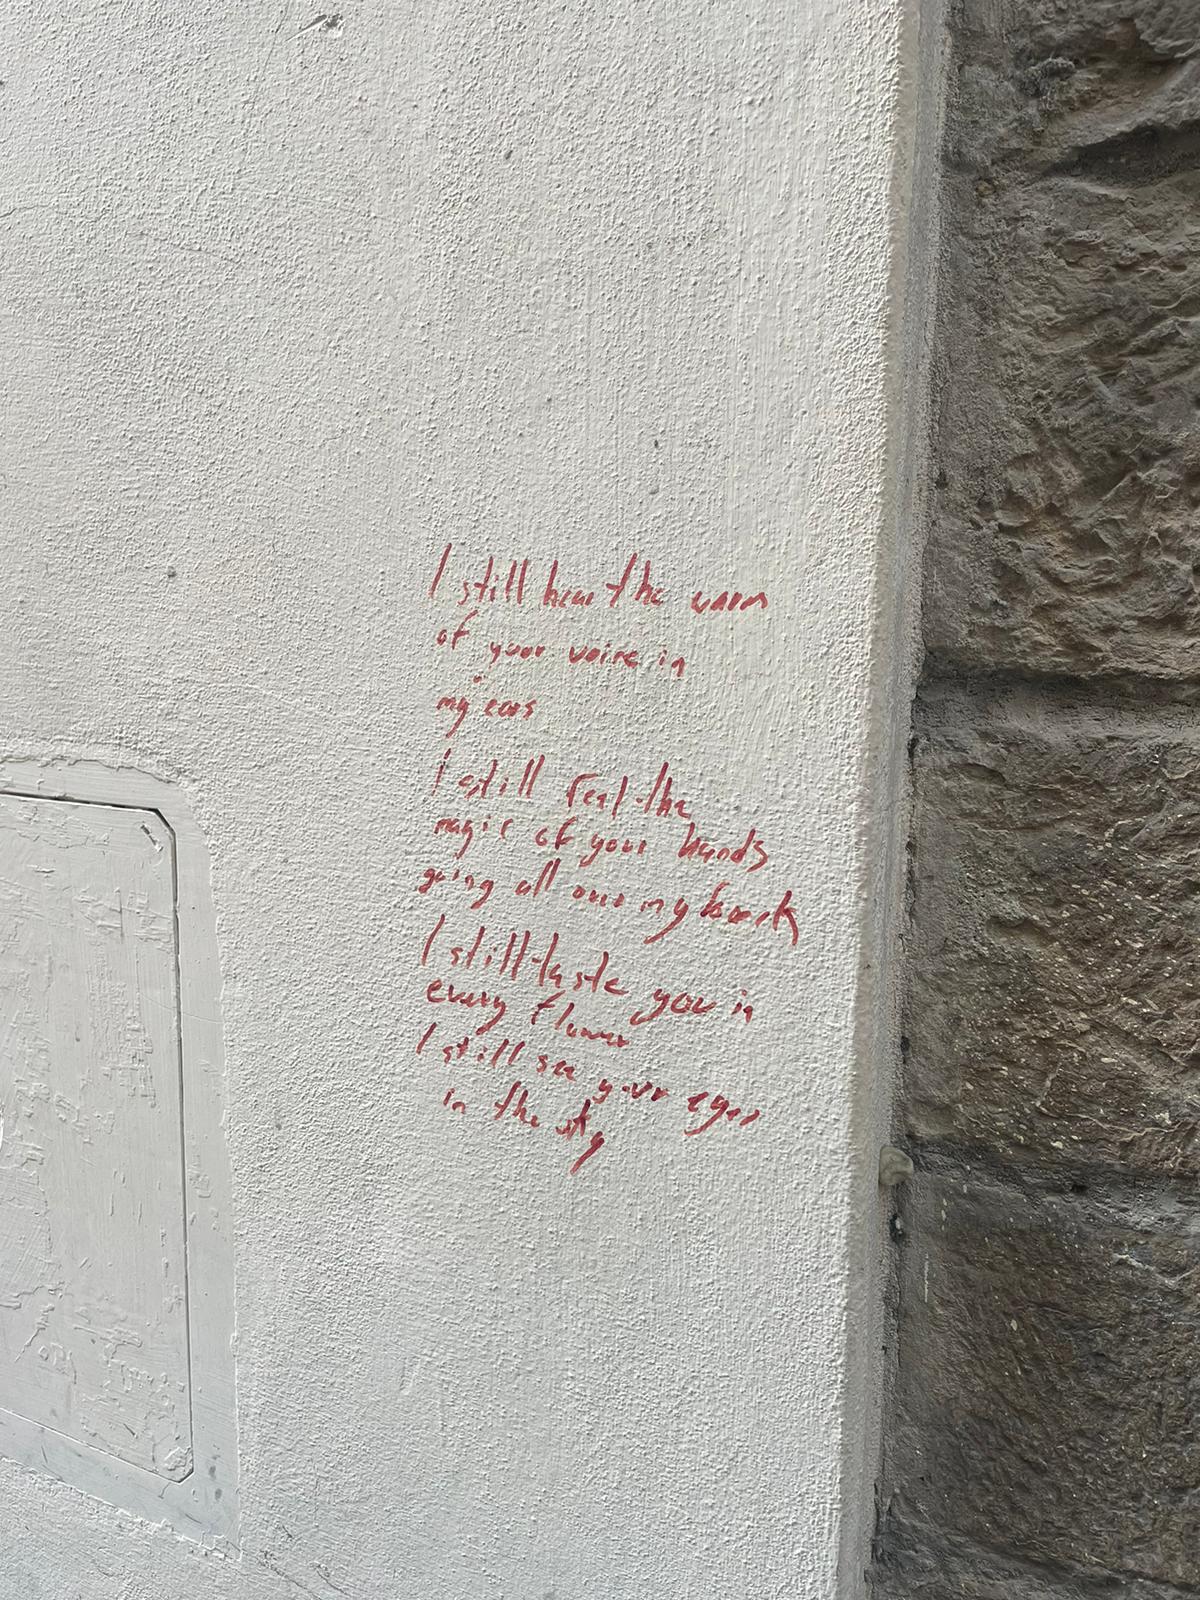 I still hear the warm
of your voice in
my ears
I still feel the
magic of your hands
going all over my back
I still taste you in
every flower
I still see your eyes
in the sky